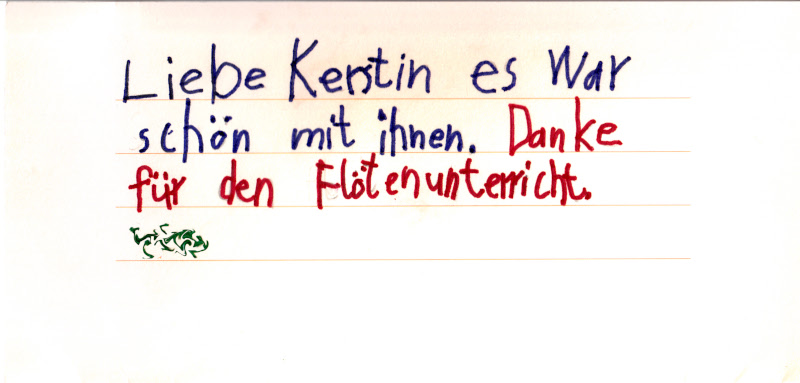 Liebe Kerstin es war
schön mit ihnen. Danke
für den Flötenunterricht.